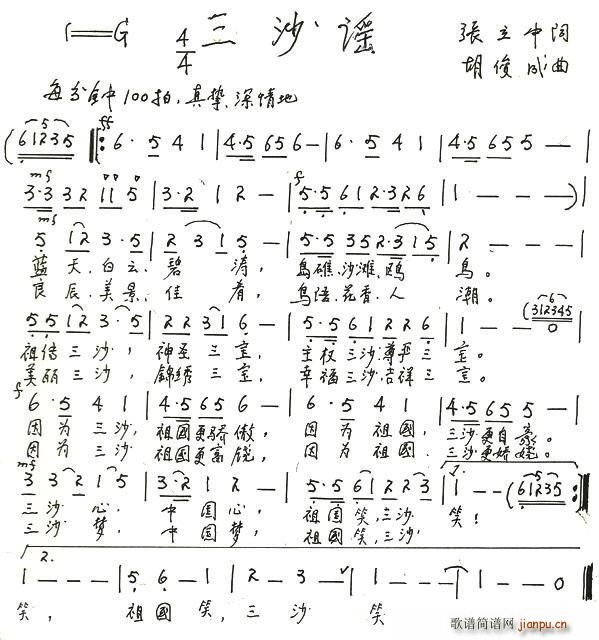 1=G 4/4 三沙谣
張立中词
胡俊成曲
每分钟100拍,真挚、深情地
(61235 ‖: 6· 5 4 1 | 4·5 65 6 - | 6· 5 4 1 | 4·5 65 5 - |
3·3 32 11 5 | 3·2 1 2 - | 5·5 61 2·3 26 | 1 - - - )
5 12 3·5 | 2 3 1 5 - | 5·5 35 2·3 15 | 2 - - - |
蓝天、白云、碧涛, 島礁、沙滩、鸥鸟。
良辰、美景、佳肴, 鸟语、花香、人潮。
5 5 12 3· 5 | 22 31 6 - | 5·5 61 22 6 | 1 - - (312345 0 |
祖传三沙,神圣三宝, 主权三沙,尊严三宝。
美丽三沙,錦綉三宝, 幸福三沙,吉祥三宝。
6· 5 4 1 | 4·5 65 6 - | 6· 5 4 1 | 4·5 65 5 - |
因为三沙,祖國更骄傲, 因为祖國,三沙更自豪。
因为三沙,祖國更高锐, 因为祖國,三沙更娇娆。
3 3 2 1 5 | 3·2 1 2 - | 5·5 61 22 3 | 1 - - (61235 :‖
三沙心,中国心, 祖国笑,三沙笑!
三沙梦,中国梦, 祖國笑,三沙
2.
1 - - - | 5 6 - 1 | 2 - 3 - | 1 - - - | 1 - - 0 ‖
笑, 祖國笑,三沙笑
歌谱简谱网
jianpu.cn